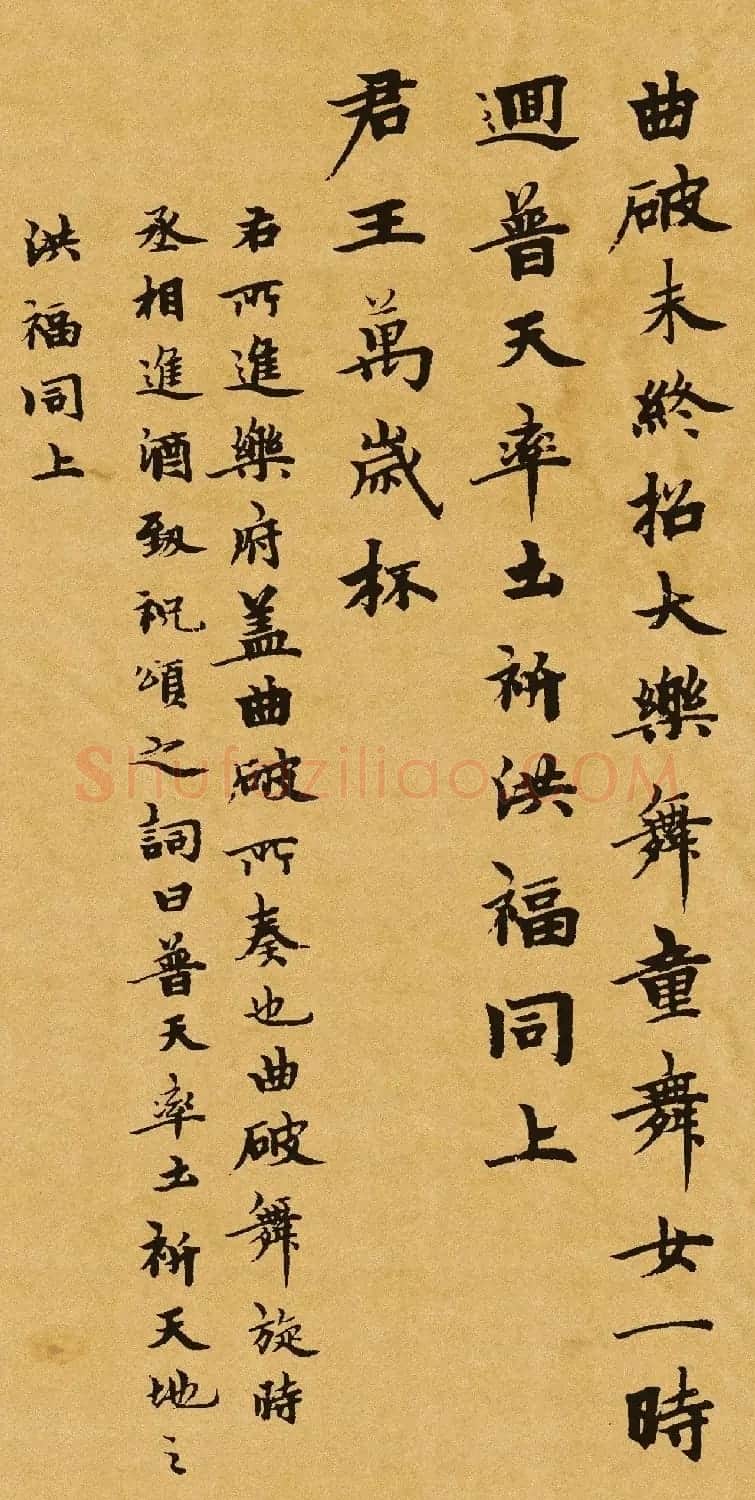 曲破未終招大樂舞童舞女一時
迴普天率土祈洪福同上
君王萬歲杯
右所進樂府蓋曲破所奏也曲破舞旋時
丞相進酒致祝頌之詞曰普天率土祈天地之
洪福同上
Shufaziliao.COM